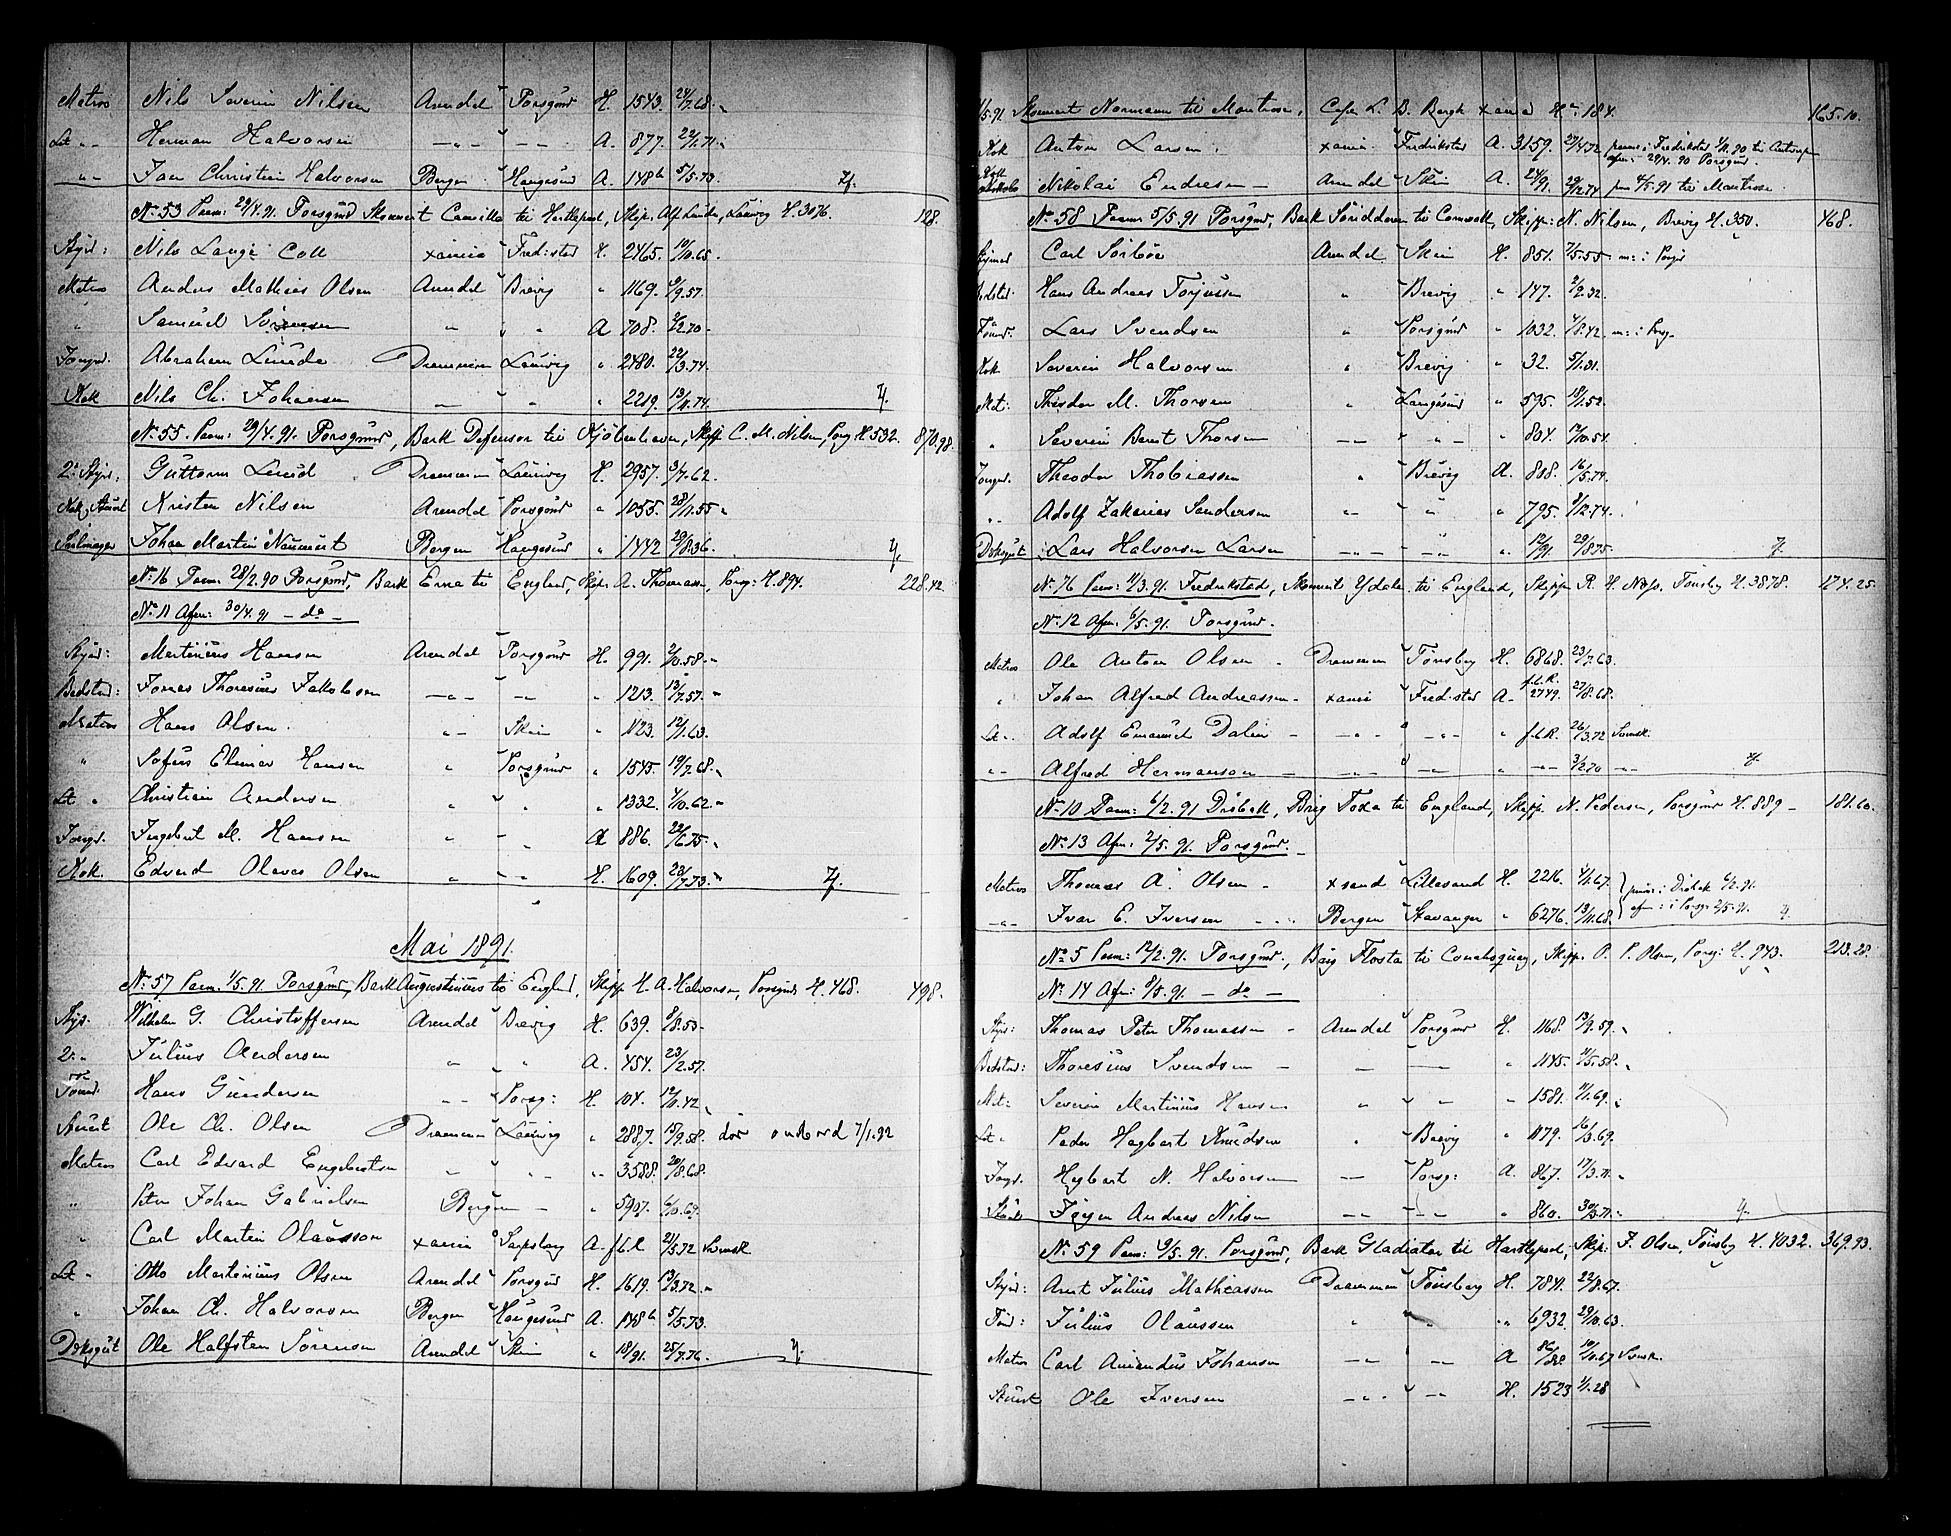 Matros Nils Severin Nilsen Arendal Porsgrund H. 1543. 24/7.68.
Let " " Herman Halvorsen — " — " — " — A. 877. 22/1.71.
" — Jaen Christian Halvorsen Bergen Haugesund A. 148b 5/5.73
No 53 Paam: 29/4.91. Porsgrund Skonnert Camilla til Hartlepool, Skip. Alf. Lunde, Laurvig H. 3076. 128.
Styrd: Nils Lange Coll xania Fredr.stad H. 2465. 10/10.65.
Matros Anders Mathias Olsen Arendal Brevig " 1169. 6/9.57.
" Samuel Sörensen " " " A 708. 2/2.70
Jungd. Abraham Lunde Drammen Laurvig " 2480. 22/3.74.
Kok Nils Ch. Johansen — " — " " 2219. 13/11.74.
No 55. Paam: 29/4.91. Porsgrund, Bark Defensor til Kjöbenhavn, Skipp C. M. Nilsen, Porsg H. 532. 870.98.
2. Styr. Guttorm Lund Drammen Laurvig H. 2957. 3/7.62.
Kok, Stuert Kristen Nilsen Arendal Porsgrund " 1055. 28/11.55
Seilmager Johan Martin Naumert Bergen Haugesund " 1442 29/8.36.
No 16 Paam: 28/2.90 Porsgrund, Bark Erna til England, Skip. A. Thomassen, Porsg: H. 894. 228.42.
No 11 Afm: 30/4.91 — do —
Styrd: Martinius Hansen Arendal Porsgrund H. 991. 2/10.58.
Bedstmd: Jonas Thoresius Jakobsen — " — — " — " 1213. 13/7.57.
Matros Hans Olsen. " — Skien " 1123. 12/1.63.
" Sofus Elimar Hansen " Porsgrund " 1545. 19/7.68.
Let " Christian Andersen " " " 1332. 4/10.62.
Jungd. Ingebret M. Hansen " — " A 886. 22/6.75.
Kok. Edvard Olaves Olsen " — " H. 1609. 23/7.73.
Mai 1891.
No 57 Paam. 1/5.91 Porsgrund, Bark Augustinus til England, Skipp H. A. Halvorsen, Porsgrund H. 468. 498.
Styr. Wilhelm G. Christoffersen Arendal Brevig H. 639. 9/8.53
2. " Julius Andersen " " " A. 454. 23/2.57.
Tömd. Hans Gundersen " " Porsg: H. 104. 12/10.42.
Stuert Ole Ch. Olsen Drammen Laurvig " 2887. 15/9.58. död ombord 7/1.92
Matros Carl Edvard Engebretsen " " " " 3588. 20/8.68.
" Peter Johan Gabrielsen Bergen — " 5907. 6/10.69.
" Carl Martin Olausson xania Sarpsborg A. f.l.R 21/5.72 Svensk
Let " Otto Martinius Olsen Arendal Porsgrund H. 1619. 13/3.72.
" Johan Ch. Halvorsen Bergen Haugesund A. 148b 5/5.73.
Dæksgut Ole Halfsten Sörensen Arendal Skien " 18/91. 25/7.76.
/5.91 Skonnert Normann til Montrose, Capt L. B. Bergh xania H. 184. 165.10.
Kok Anton Larsen. xania Fredrikstad A. 3159. 27/4.72 paam: i Fredrikstad 1/11.90 til Antwerpen
afm: 29/4.90 Porsgrund.
Nikolai Endresen — Arendal Skien A. 24/91. 29/12.74 paam 4/5.91 til Montrose.
No 58 Paam: 5/5.91 Porsgrund, Bark Sörideren til Cornwall, Skipp: N. Nilsen, Brevig H. 350. 468.
Styrmd Carl Sörboe Arendal Skien H. 851. 7/5.55 m: i Porsgr
Bedstmd. Hans Andreas Torjussen " Brevig " 147. 2/9.32.
Tömd. Lars Svendsen " Porsgrund " 1032. 4/8.42 m: i Porsg.
Kok Severin Halvorsen " Brevig " 32. 5/1.31.
Mat: Theodor M. Thorsen " Langesund " 595. 18/1.52.
" Severin Bernt Thorsen — " " — " 804. 17/10.54.
Jungd. Theodor Thobiassen " Brevig A. 888. 16/5.74.
" Adolf Zakarias Sandersen " — " " 795. 8/12.74.
Dæksgut Lars Halvorsen Larsen — " — " — " 12/91. 29/8.75
No 76 Paam: 11/3.91. Fredrikstad, Skonnert Ydale til England, Skipper R. H. Næss, Tönsberg H. 3878. 174.25.
No 12 Afm: 6/5.91. Porsgrund.
Matros Ole Anton Olsen Drammen Tönsberg H. 6868. 23/7.63.
" Johan Alfred Andreassen xania Fredr.stad A. f.l.R. 2749. 27/8.68.
Let " Adolf Emanuel Dalin — " — — " — " f.l.R. 26/3.72 Svensk
" " Alfred Hermanson — — " — — " — " — " — 3/2.70 — " —
No 10 Paam: 6/2.91 Dröbak, Brig Toxa til England, Skipp. N. Pedersen, Porsgrund H. 889 — 181.60.
No 13 Afm: 2/5.91. Porsgrund.
Matros Thomas A. Olsen — xsand Lillesand H. 2216. 4/1.67. paam: i Dröbak 6/2.91.
— " — Ivar E. Iversen Bergen Stavanger " 6276. 13/11.68 afm: i Porsg. 2/5.91.
No 5 Paam: 12/2.91. Porsgrund, Brig Flosta til Conahsquay, Skipp. O. P. Olsen, Porsg: H. 943. 213.28.
No 14 Afm: 9/5.91. — do —
Styrd: Thomas Peter Thomassen — Arendal Porsgrund H. 1168. 13/9.59.
Bedstmd: Thoresius Svendsen — — " — 1145. 11/5.58.
Mat: Severin Martinius Hansen " " " " 1581. 11/1.69.
Let " Peder Hagbart Knudsen " Brevig " 1179. 16/3.69.
Jungd. Hagbart N. Halvorsen — Porsg: A. 867. 17/3.71.
Jörgen Andreas Nilsen — " — — " — " 860. 30/3.71.
No 59 Paam: 9/5.91. Porsgrund, Bark Gladiator til Hartlepool, Skip: J. Olsen, Tönsberg H. 4032. 369.93.
Styrd: Arnt Julius Mathiassen Drammen Tönsberg H. 784. 22/8.67.
Tömd: Julius Olaussen " " " 6932. 29/10.63.
Matros Carl Amandus Johansen — " — — " A 86/88 10/10.67 Svensk.
Stuert Ole Iversen — " — — " — H. 1523 1/1.28